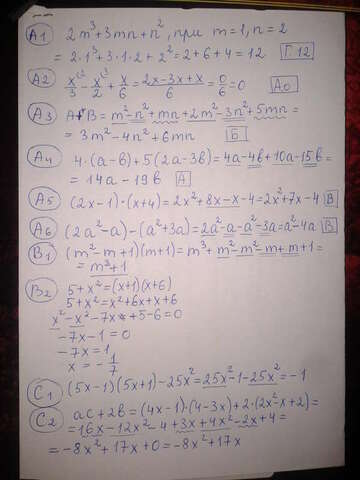 A1 2m³+3mn+n², при m=1, n=2
= 2·1³+3·1·2+2²=2+6+4=12 Г 12
A2 x/3 - x/2 + x/6 = (2x-3x+x)/6 = 0/6 = 0 A 0
A3 A+B = m²-n²+mn+2m²-3n²+5mn=
= 3m²-4n²+6mn Б
A4 4·(a-b)+5(2a-3b)=4a-4b+10a-15b=
= 14a-19b A
A5 (2x-1)·(x+4)=2x²+8x-x-4=2x²+7x-4 В
A6 (2a²-a)-(a²+3a)=2a²-a-a²-3a=a²-4a В
B1 (m²-m+1)(m+1)=m³+m²-m²-m+m+1=
= m³+1
B2 5+x²=(x+1)(x+6)
5+x²=x²+6x+x+6
x²-x²-7x+5-6=0
-7x-1=0
-7x=1
x = -1/7
C1 (5x-1)(5x+1)-25x²=25x²-1-25x²=-1
C2 ac+2b=(4x-1)·(4-3x)+2·(2x²-x+2)=
=16x-12x²-4+3x+4x²-2x+4=
=-8x²+17x+0=-8x²+17x